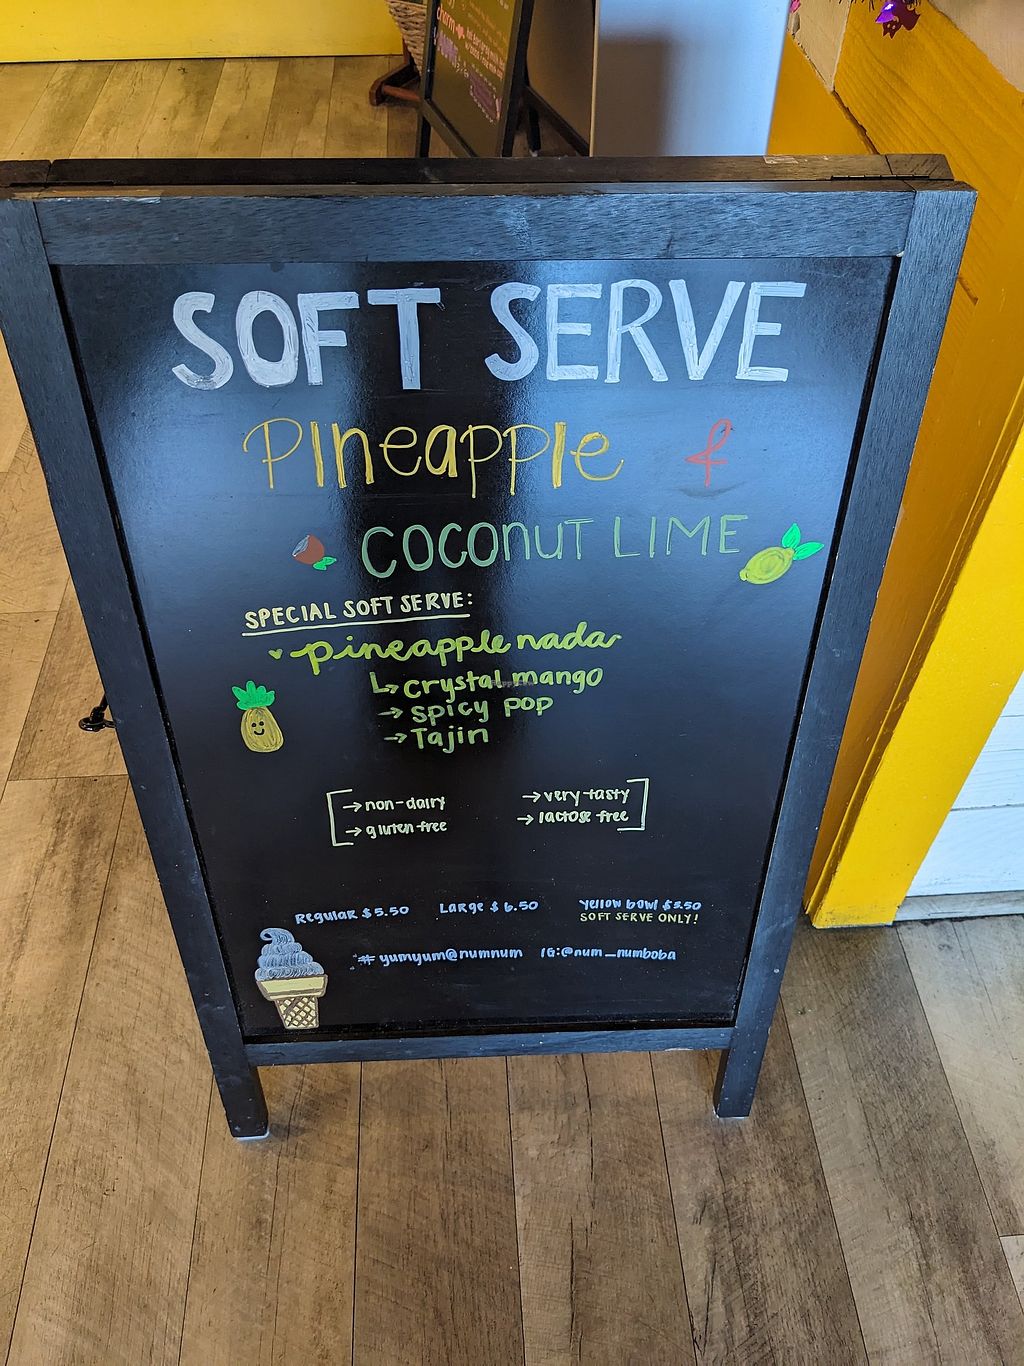 SOFT SERVE
PIneapple &
COCOnUT LIME
SPECIAL SOFT SERVE:
pineapple nada
crystal mango
→ spicy pop
→ Tajin
→ non-dairy
→ gluten free
→ very tasty
→ lactose free
Regular $5.50
Large $6.50
Yellow bowl $3.50
SOFT SERVE ONLY!
# yumyum@numnum
IG:@num_numboba